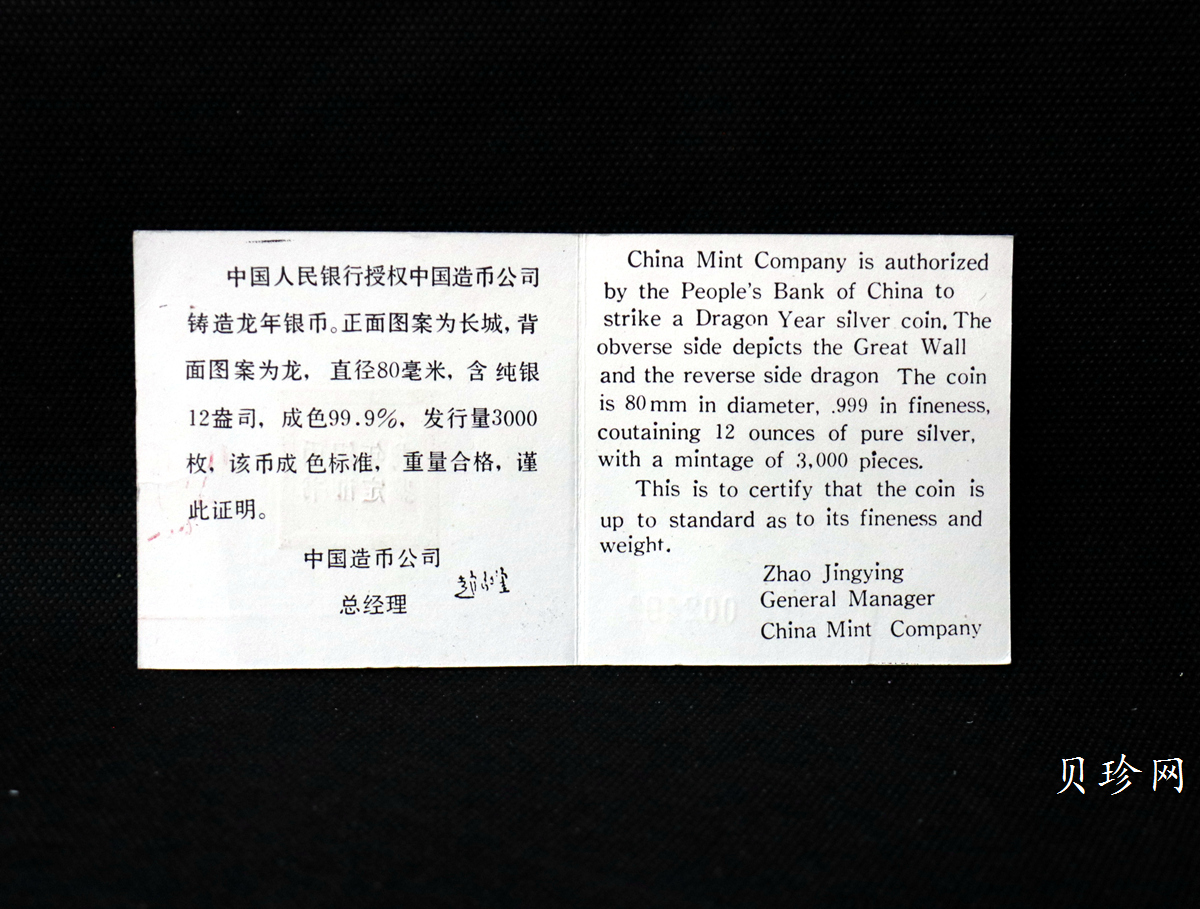 中国人民银行授权中国造币公司
铸造龙年银币。正面图案为长城,背
面图案为龙, 直径80毫米, 含 纯银
12盎司, 成色99.9%, 发行量3000
枚, 该币成 色标准, 重量合格, 谨
此证明。
中国造币公司
总经理
China Mint Company is authorized
by the People's Bank of China to
strike a Dragon Year silver coin. The
obverse side depicts the Great Wall
and the reverse side dragon The coin
is 80mm in diameter, .999 in fineness,
coutaining 12 ounces of pure silver,
with a mintage of 3,000 pieces.
This is to certify that the coin is
up to standard as to its fineness and
weight.
Zhao Jingying
General Manager
China Mint Company
贝珍网